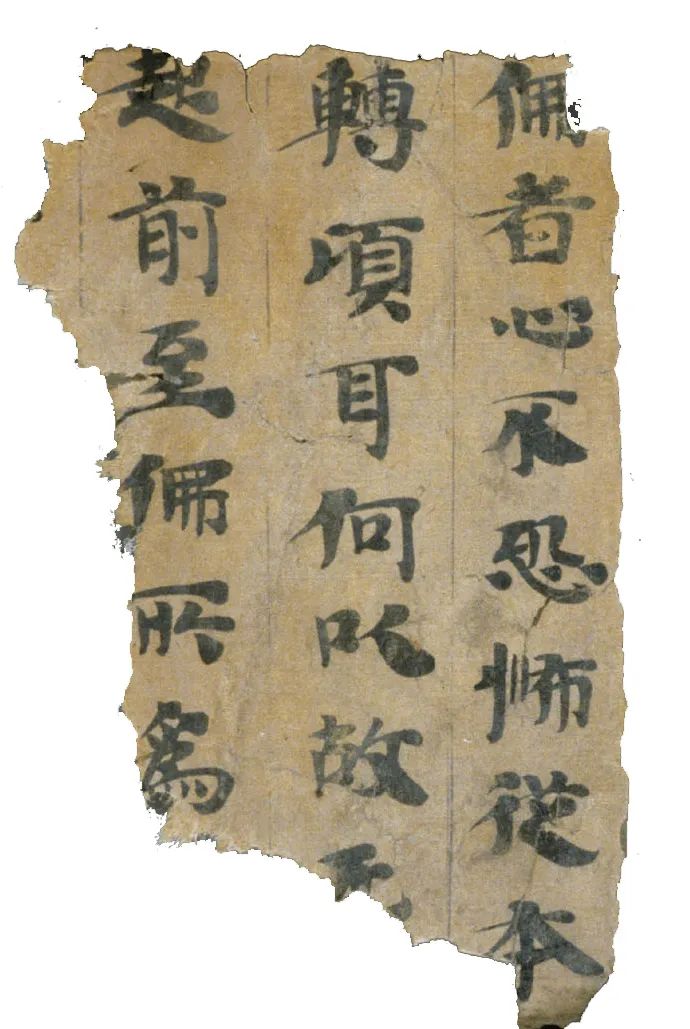 佛者心不恐怖從本
轉頃耳何以故
起前至佛所爲